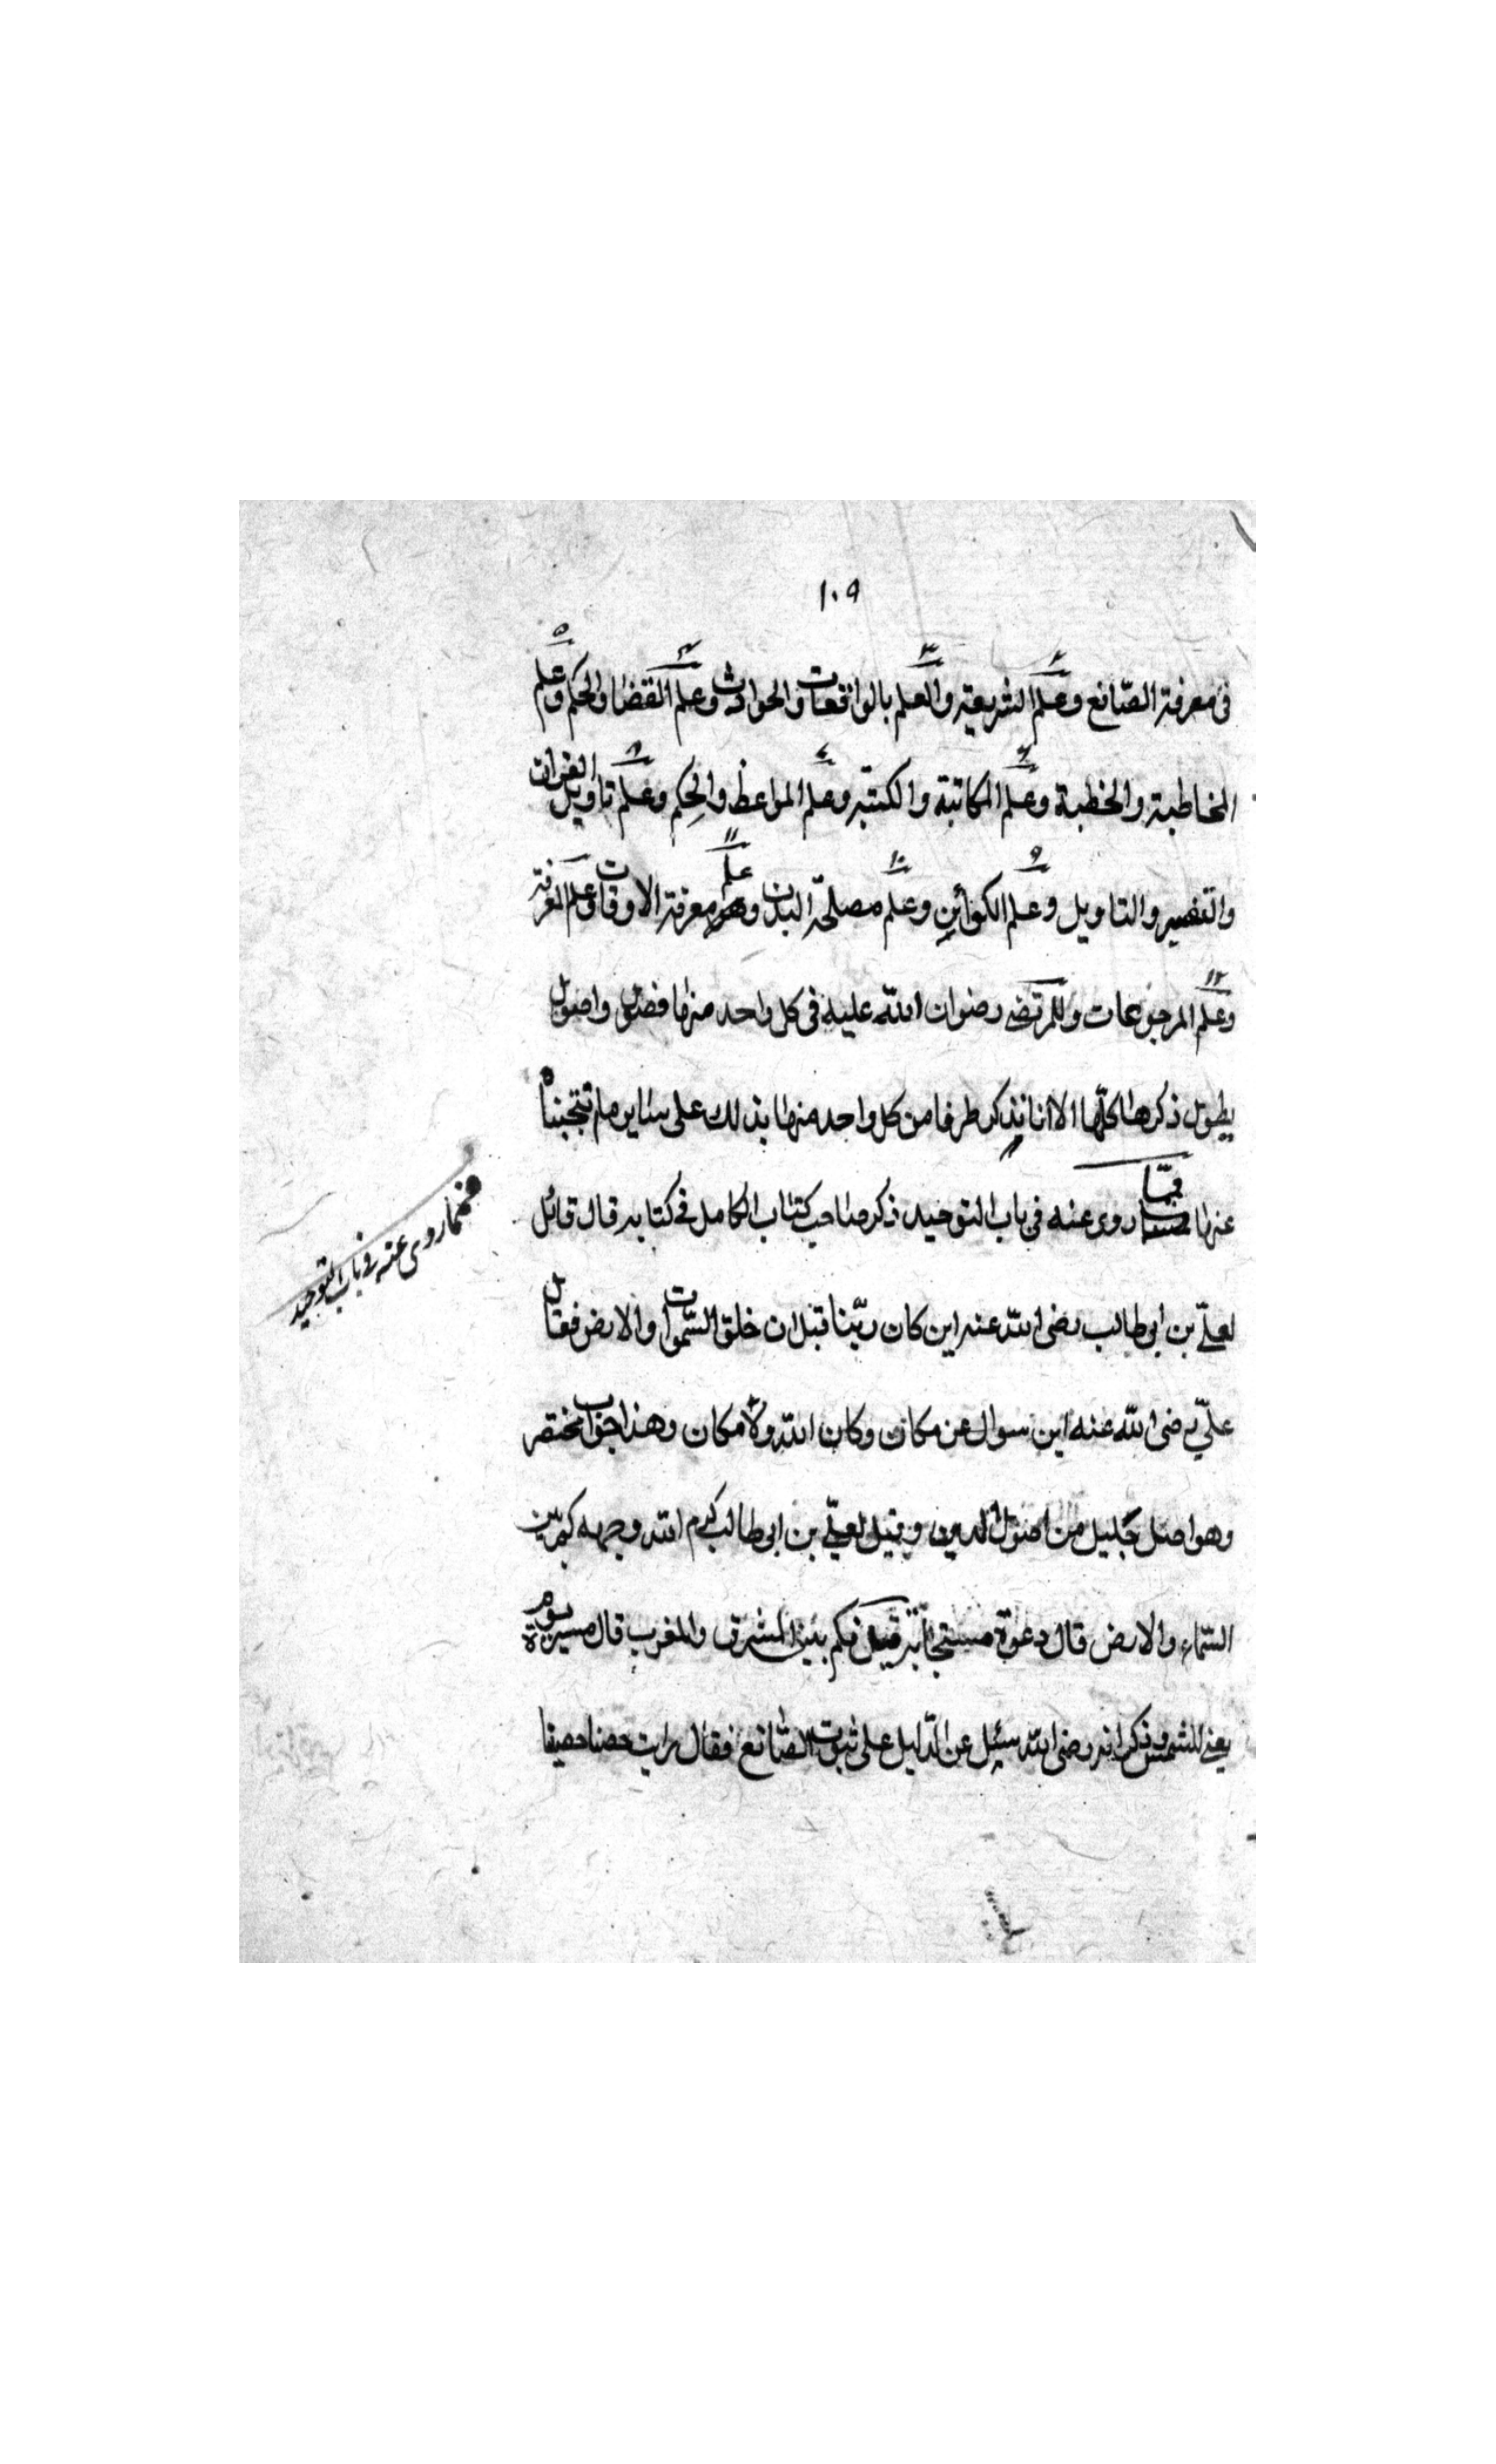 ١٠٩
فى معرفة الصّانع وعلم الشريعة والعلم بالواقعات والحوادث وعلم القضا والحكم وعلم
المخاطبة والخطبة وعلم المكاتبة والكتبة وعلم المواعظ والحِكم وعلم تاويل القران
والتفسير والتاويل وعلم الكوائن وعلم مصلحة البدن وعلم معرفة الاوقات وعلم المعرفة
وعلم المرجوعات وللمرتضى رضوان الله عليه فى كل واحد منها فصول واصول
يطول ذكرها كلّها الا انا نذكر طرفا من كل واحد منها بذلك على ساير مام تتجنبنا
عنها فمّا روى عنه فى باب التوحيد ذكر صاحب كتاب الكامل فى كتابه قال قائل
لعلىّ بن ابى طالب رضى الله عنه اين كان ربّنا قبل ان خلق السّموات والارض فقال
علىّ رضى الله عنه اين سوال عن مكان وكان الله ولا مكان وهذا جواب مختصر
وهو اصل جليل من اصول الدين وقيل لعلىّ بن ابى طالب كرم الله وجهه كم بين
السّماء والارض قال دعوة مستجابة قيل فكم بين المشرق والمغرب قال مسيرة يوم
يعنى للشمس وذكر انه رضى الله سئيل عن الدّليل على ثبوت الصّانع فقال رايت حصنا حصينا
فمما روى عنه فى باب التوحيد